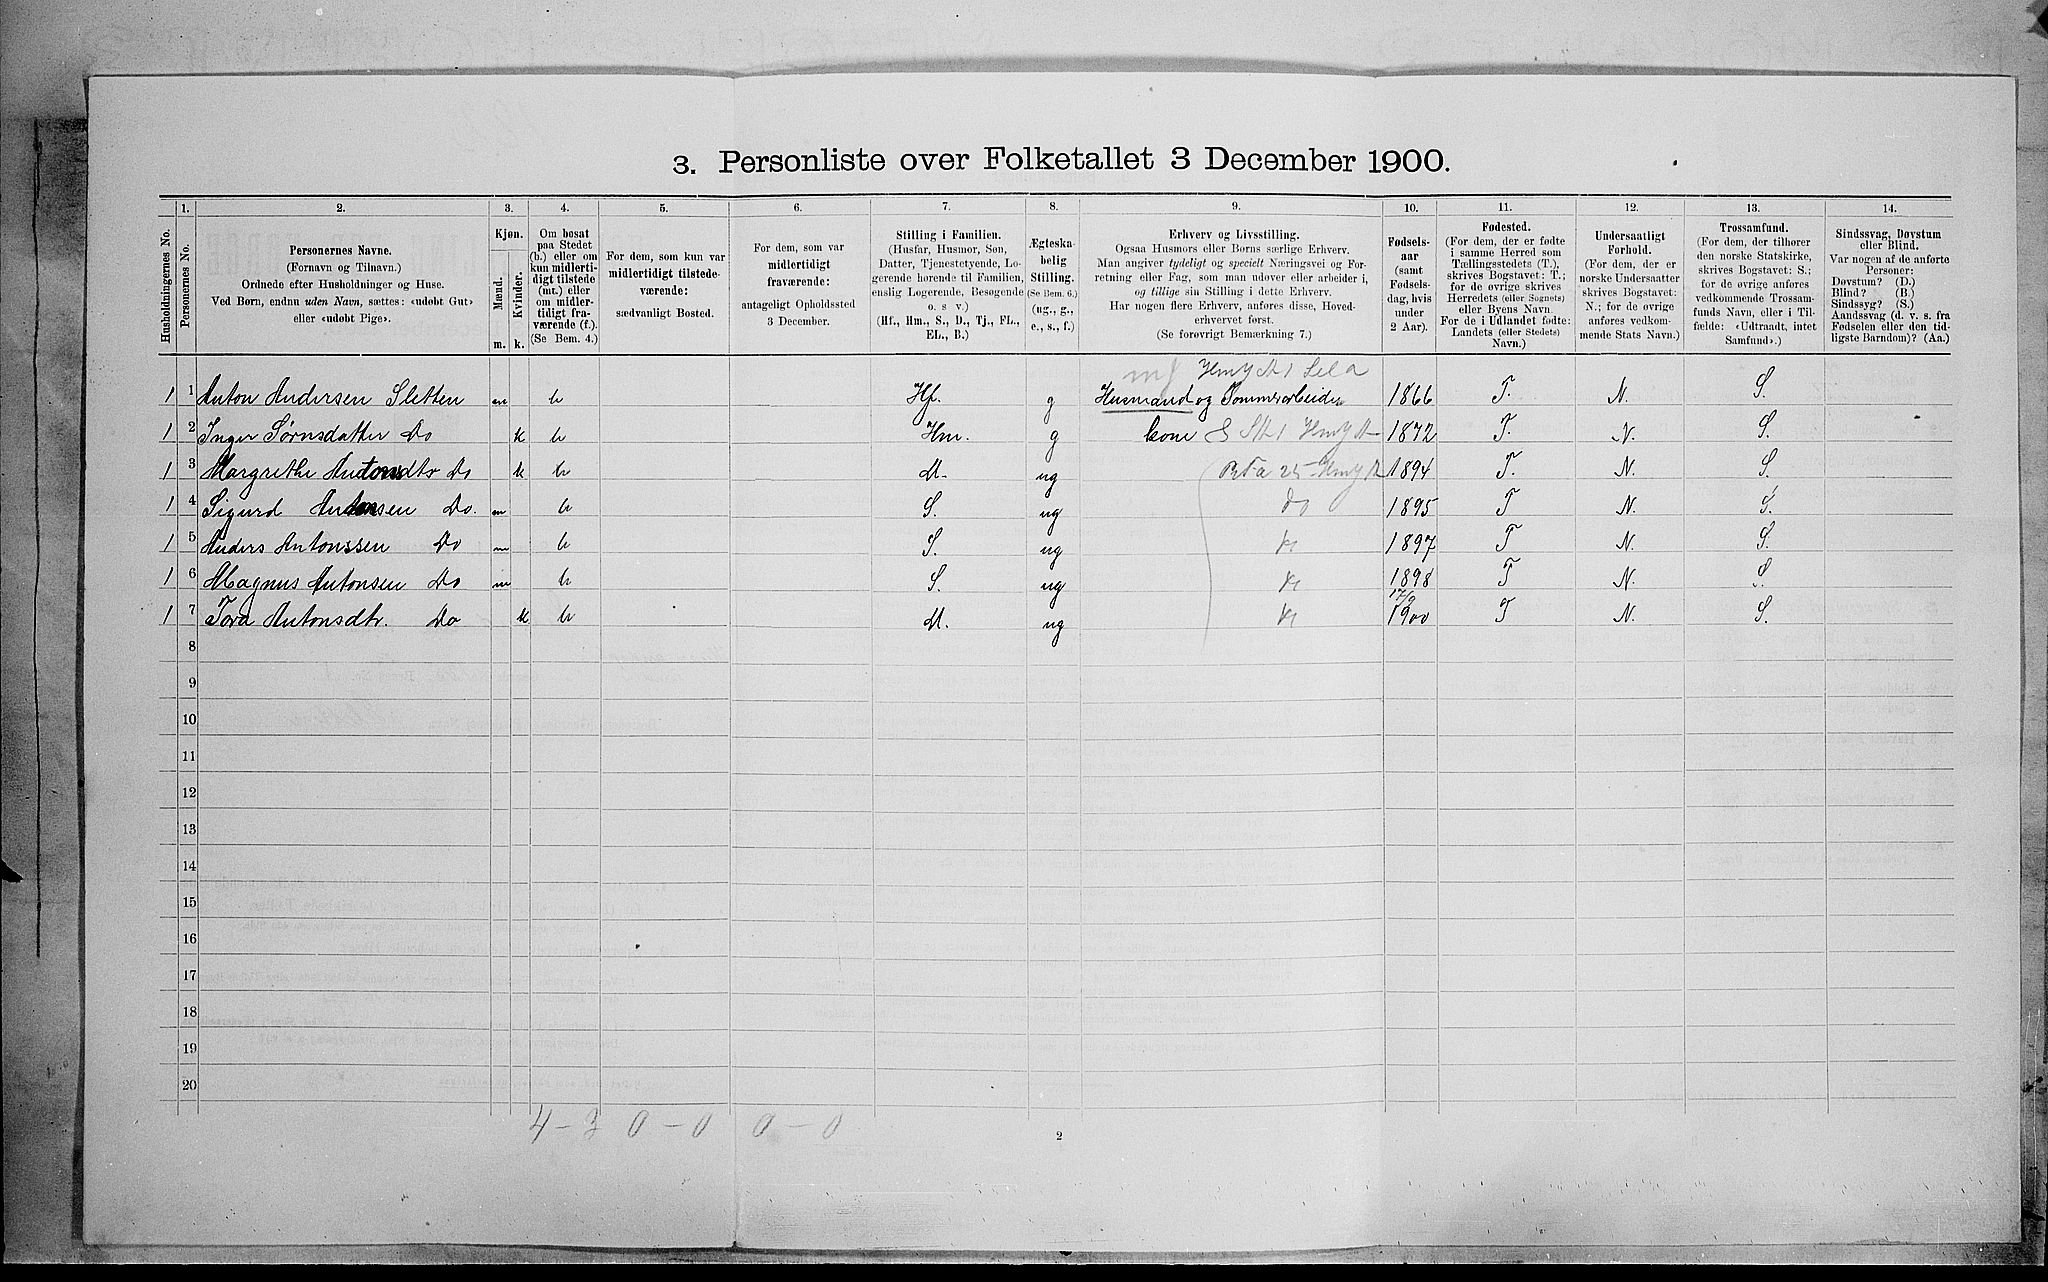 3. Personliste over Folketallet 3 December 1900.
1. 2. 3. 4. 5. 6. 7. 8. 9. 10. 11. 12. 13. 14.
Husholdningernes No.
Personernes No.
Personernes Navne.
(Fornavn og Tilnavn.)
Ordnede efter Husholdninger og Huse.
Ved Børn, endnu uden Navn, sættes: «udobt Gut»
eller «udobt Pige».
Kjøn.
Mænd.
Kvinder.
m. k.
Om bosat
paa Stedet
(b.) eller om
kun midlerti-
digt tilstede
(mt.) eller
om midler-
tidigt fra-
værende (f.).
(Se Bem. 4.)
For dem, som kun var
midlertidigt tilstede-
værende:
sædvanligt Bosted.
For dem, som var
midlertidigt
fraværende:
antageligt Opholdssted
3 December.
Stilling i Familien.
(Husfar, Husmor, Søn,
Datter, Tjenestetyende, Lo-
gerende hørende til Familien,
enslig Logerende, Besøgende
o. s v.)
(Hf., Hm., S., D., Tj., FL.,
EL., B.)
Ægteska-
belig
Stilling.
(Se Bem. 6.)
(ug., g.,
e., s., f.)
Erhverv og Livsstilling.
Ogsaa Husmors eller Børns særlige Erhverv.
Man angiver tydeligt og specielt Næringsvei og For-
retning eller Fag, som man udøver eller arbeider i,
og tillige sin Stilling i dette Erhverv.
Har nogen flere Erhverv, anføres disse, Hoved-
erhvervet først.
(Se forøvrigt Bemærkning 7.)
Fødsels-
aar
(samt
Fødsels-
dag, hvis
under
2 Aar).
Fødested.
(For dem, der er fødte
i samme Herred som
Tællingsstedets (T.),
skrives Bogstavet: T.;
for de øvrige skrives
Herredets (eller Sognets)
eller Byens Navn.
For de i Udlandet fødte:
Landets (eller Stedets)
Navn.)
Undersaatligt
Forhold.
(For dem, der er
norske Undersaatter
skrives Bogstavet:
N.; for de øvrige
anføres vedkom-
mende Stats Navn.)
Trossamfund.
(For dem, der tilhører
den norske Statskirke,
skrives Bogstavet: S.;
for de øvrige anføres
vedkommende Trossam-
funds Navn, eller i Til-
fælde: «Udtraadt, intet
Samfund».)
Sindssvag, Døvstum
eller Blind.
Var nogen af de anførte
Personer:
Døvstum? (D.)
Blind? (B.)
Sindssyg? (S.)
Aandssvag (d. v. s. fra
Fødselen eller den tid-
ligste Barndom)? (Aa.)
1 1 Anton Andersen Sletten m b Hf. g Husmand og Tommerarbeider 1866 T. N. S.
1 2 Inger Sørnsdatter Do k b Hm. g kone 1872 T. N. S.
1 3 Margrethe Antonsdtr Do k b D. ug 1894 T. N. S.
1 4 Sigurd Antonsen Do. m b S. ug do 1895 T N. S.
1 5 Anders Antonssen Do m b S. ug 1897 T N. S.
1 6 Magnus Antonsen Do m b S. ug 1898 T N. S.
17/9
1 7 Tora Antonsdtr. Do k b D. ug 1900 T N. S.
8
9
10
11
12
13
14
15
16
17
18
19
20
4 - 3 0 - 0 0 - 0
2